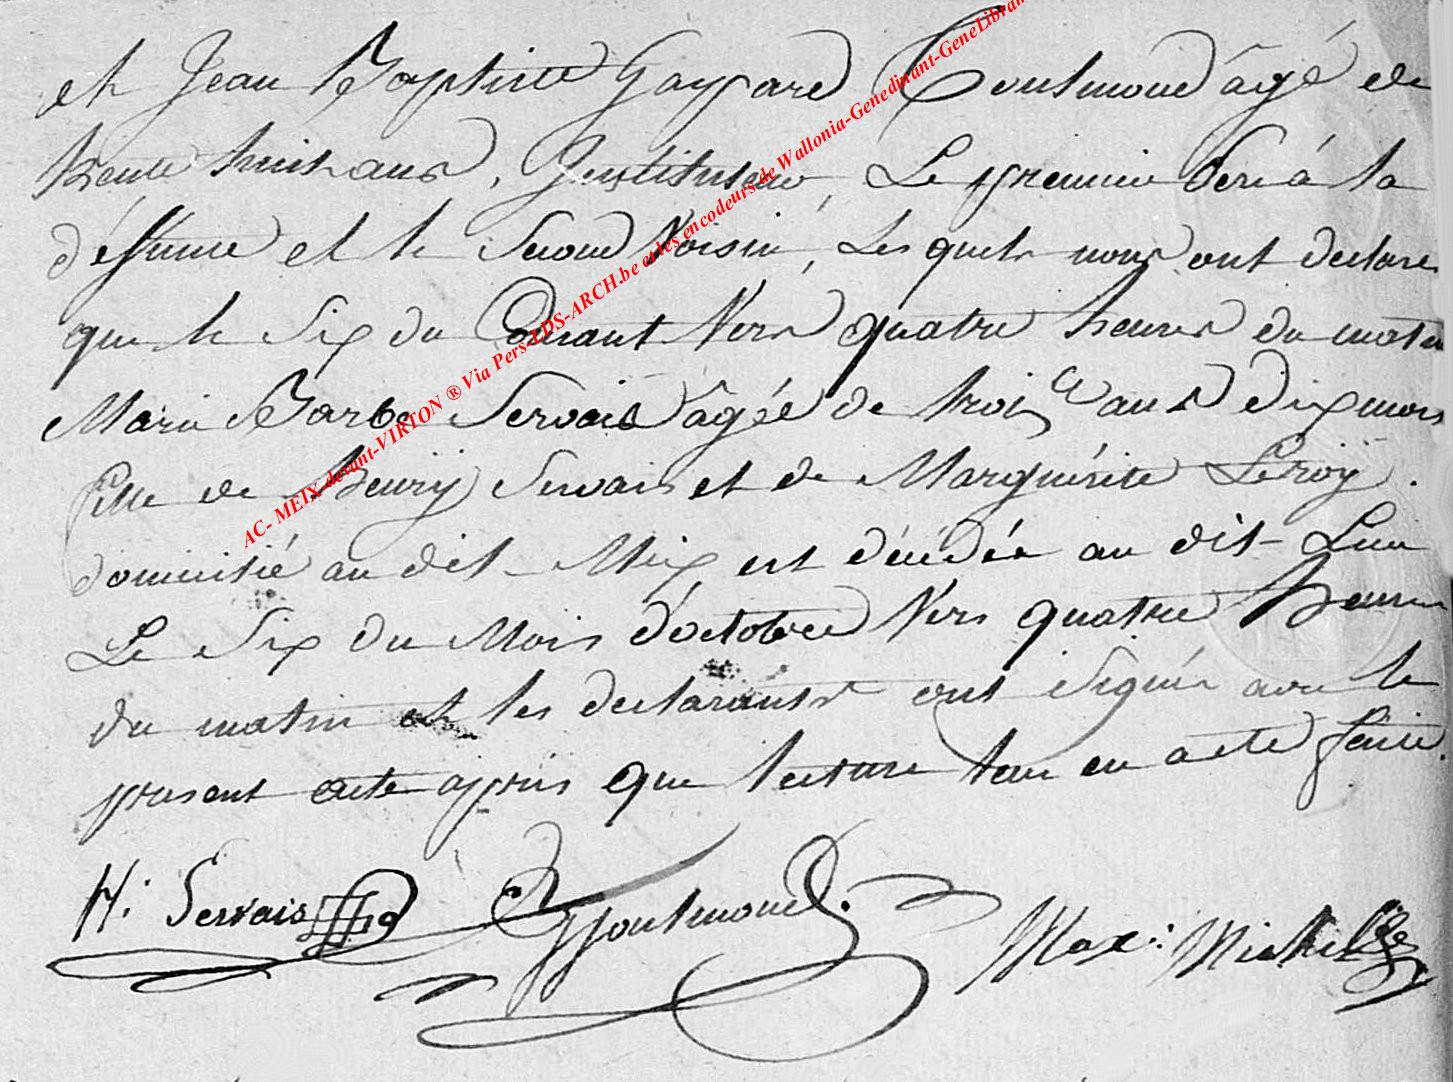 et Jean Baptiste Gaspard Goutmond âgé de
trente huit ans, Instituteur, Le premier Pere à la
défunte et le Second Voisin, Les quels nous ont declaré
que le Six du Courant Vers quatre heures du matin
Marie Barbe Servais âgée de trois ans dix mois
fille de Henrÿ Servais et de Marguérite Leroÿ.
domicilié au dit Meix, est décédée au dit Lieu
Le Six du Mois d'octobre Vers quatre heures
du matin et les declarants ont Signés avec le
present acte après que lecture leur en a eté faite.
H: Servais Goutmond. Max: Michel
AC- MEIX-devant-VIRTON ® Via Pers-LDS-ARCH.be et les encodeurs de Wallonia-Genedinant-GeneLibran